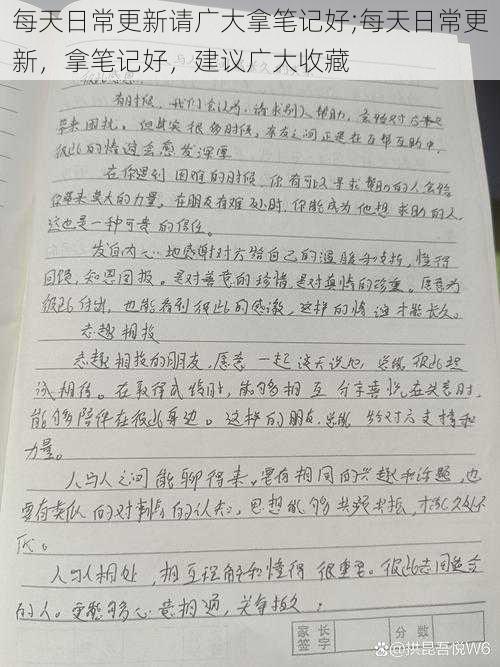 每天日常更新请广大拿笔记好;每天日常更
新，拿笔记好，建议广大收藏
彼此感恩
有时候，我们会认为，请求别人帮助，会给对方带
来困扰。但其实很多时候，朋友之间正是在互帮互助中，
彼此的情谊会愈发深厚
在你遇到困难的时候，你有可以寻求帮助的人会给
你带来莫大的力量。在朋友有难处时，你能成为他想求助的人，
这也是一种可贵的信任。
发自内心地感谢对方给自己的温暖和支持，懂得
回馈，知恩图报。是对善意的珍惜，是对真情的珍重。愿意为
彼此付出，也能看到彼此的感激，这样的情谊才能长久。
志趣相投
志趣相投的朋友，愿意一起谈天说地，总能彼此坦
诚相待。在取得成绩时，能够相互分享喜悦，在失意时，
能够陪伴在彼此身边。这样的朋友，总能给对方支持和
力量。
人与人之间能聊得来，要有相同的兴趣和话题，也
要有类似的对事情的认知，思想能够共频共振，才能久处不
厌。
人与人相处，相互理解和懂得很重要。彼此志同道合
的人。更能够心意相通，关系持久。
家长
签字
分数
@拱昆吾悦W6